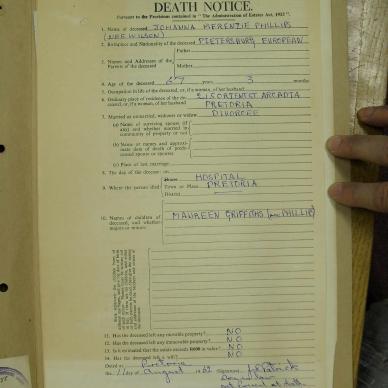 DEATH NOTICE.
Pursuant to the Provisions contained in "The Administration of Estates Act, 1913"
1. Name of deceased JOHANNA MERENZIE PHILLIPS
(NEE WILSON)
2. Birthplace and Nationality of the deceased PIETERSBURG EUROPEAN
3. Names and Addresses of the Parents of the deceased
Father
Mother
4. Age of the deceased 67 years 3 months
5. Occupation in life of the deceased, or, if a woman, of her husband
6. Ordinary place of residence of the deceased, or, if a woman, of her husband ARCADIA
PRETORIA
7. Married or unmarried, widower or widow DIVORCEE
(a) Name of surviving spouse (if any) and whether married in community of property or not
(b) Name or names and approximate date of death of predeceased spouse or spouses
(c) Place of last marriage
8. The day of the decease: on
9. Where the person died
House HOSPITAL
Town or Place PRETORIA
District
10. Names of children of deceased, and whether majors or minors
MAUREEN GRIFFITHS (nee PHILLIPS)
11. Has the deceased left any movable property? NO
12. Has the deceased left any immovable property? NO
13. Is it estimated that the estate exceeds in value? NO
14. Has the deceased left a will? NO
Dated at Pretoria
the 11 day of August 19 62 Signature
at death